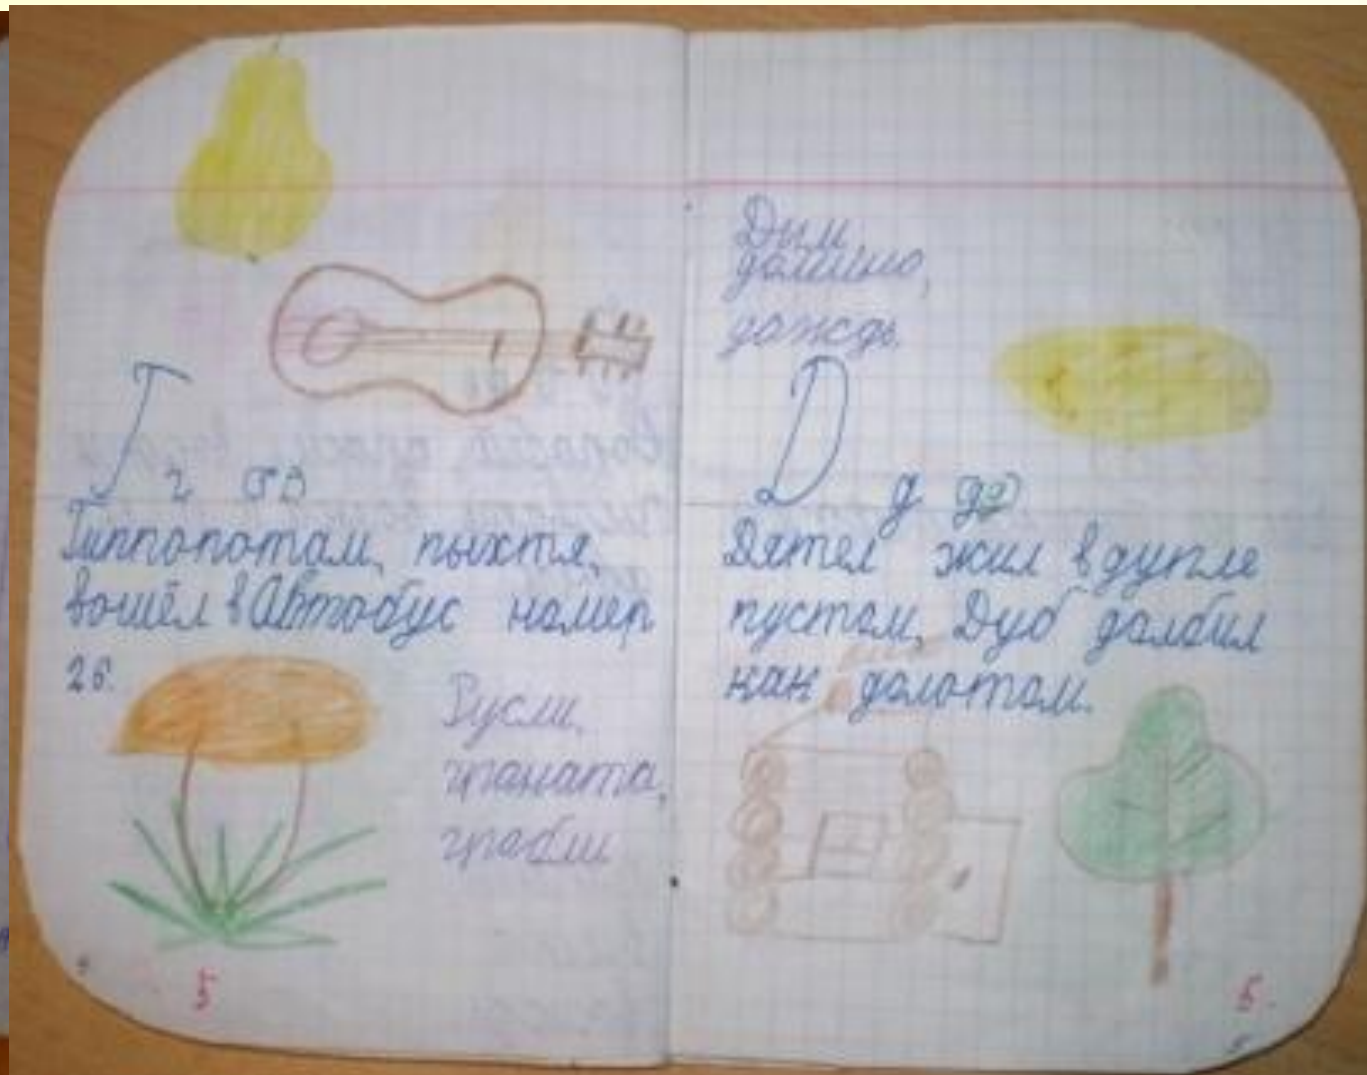 Г
г
Гиппопотам, пыхтя,
вошёл в Автобус номер
26.
Гусли,
граната,
грабли
5
Дым,
домино,
дождь.
D
д
Дятел жил в дупле
пустом, Дуб долбил
как долотом.
5.